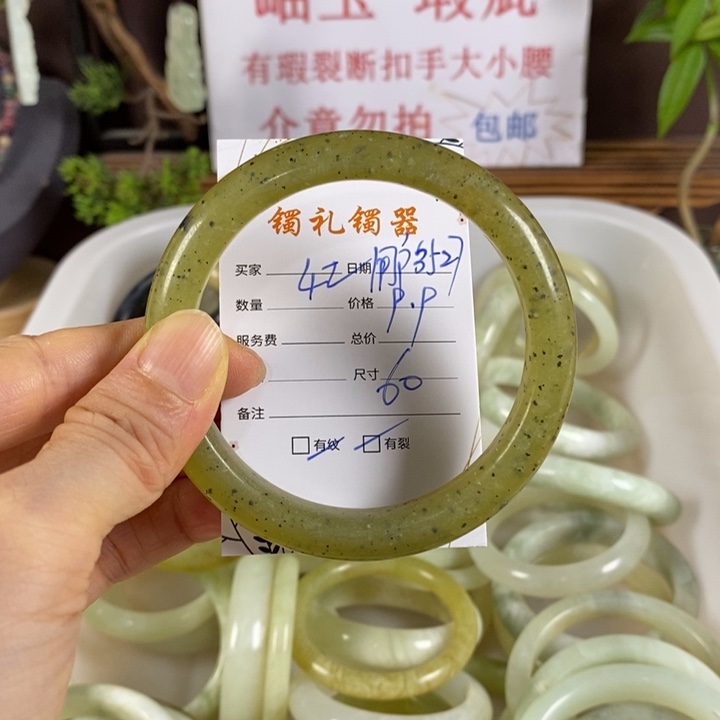 岫玉 瑕疵
有瑕裂断扣手大小腰
介意勿拍 包邮
镯礼镯器
买家 日期
数量 价格 9.9
服务费 总价
尺寸 60
备注
□有纹 □有裂